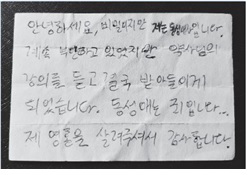 안녕하세요, 비밀이지만 저는 동성애자입니다.
계속 부인하고 있었지만 약사님의
강의를 듣고 결국 받아들이게
되었습니다. 동성애는 죄입니다...
제 영혼을 살려주셔서 감사합니다.